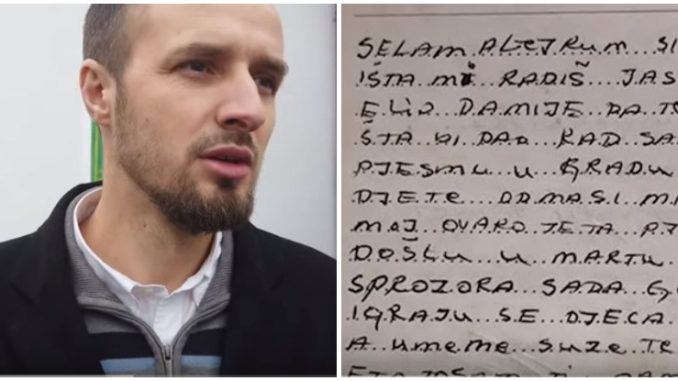 SELAM ALEJKUM...SI
IŠTA MI RADIŠ...JAS
ELIO...DA MI JE...DA TE
ŠTA BI DAO...KAD SA
PJESMU...U GRADU
DJETE...ODMA SI M
MOJ...OVAKO TETA
DOŠLU...U MARTU
SPROZORA SADA G
IGRAJU...SE...DJECA
A...UMEME...SUZE TE